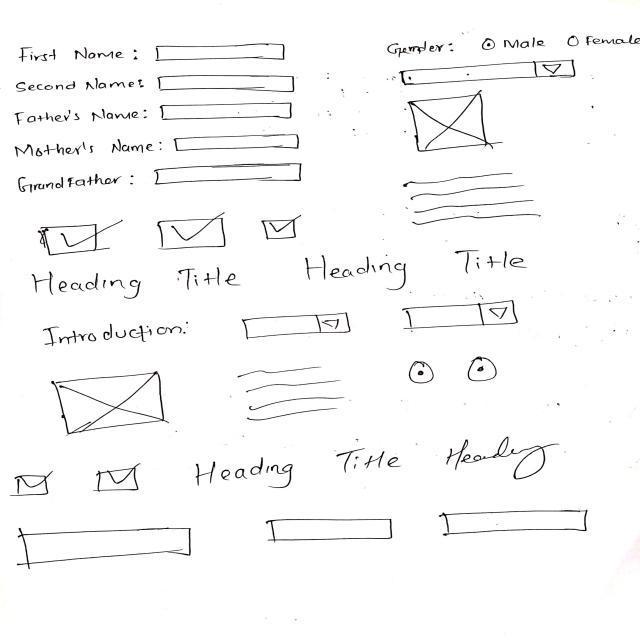 First Name :
Second Name:
Father's Name:
Mother's Name:
Grandfather :
Gender: Male Female
Heading Title Heading Title
Introduction:
Heading Title Heading